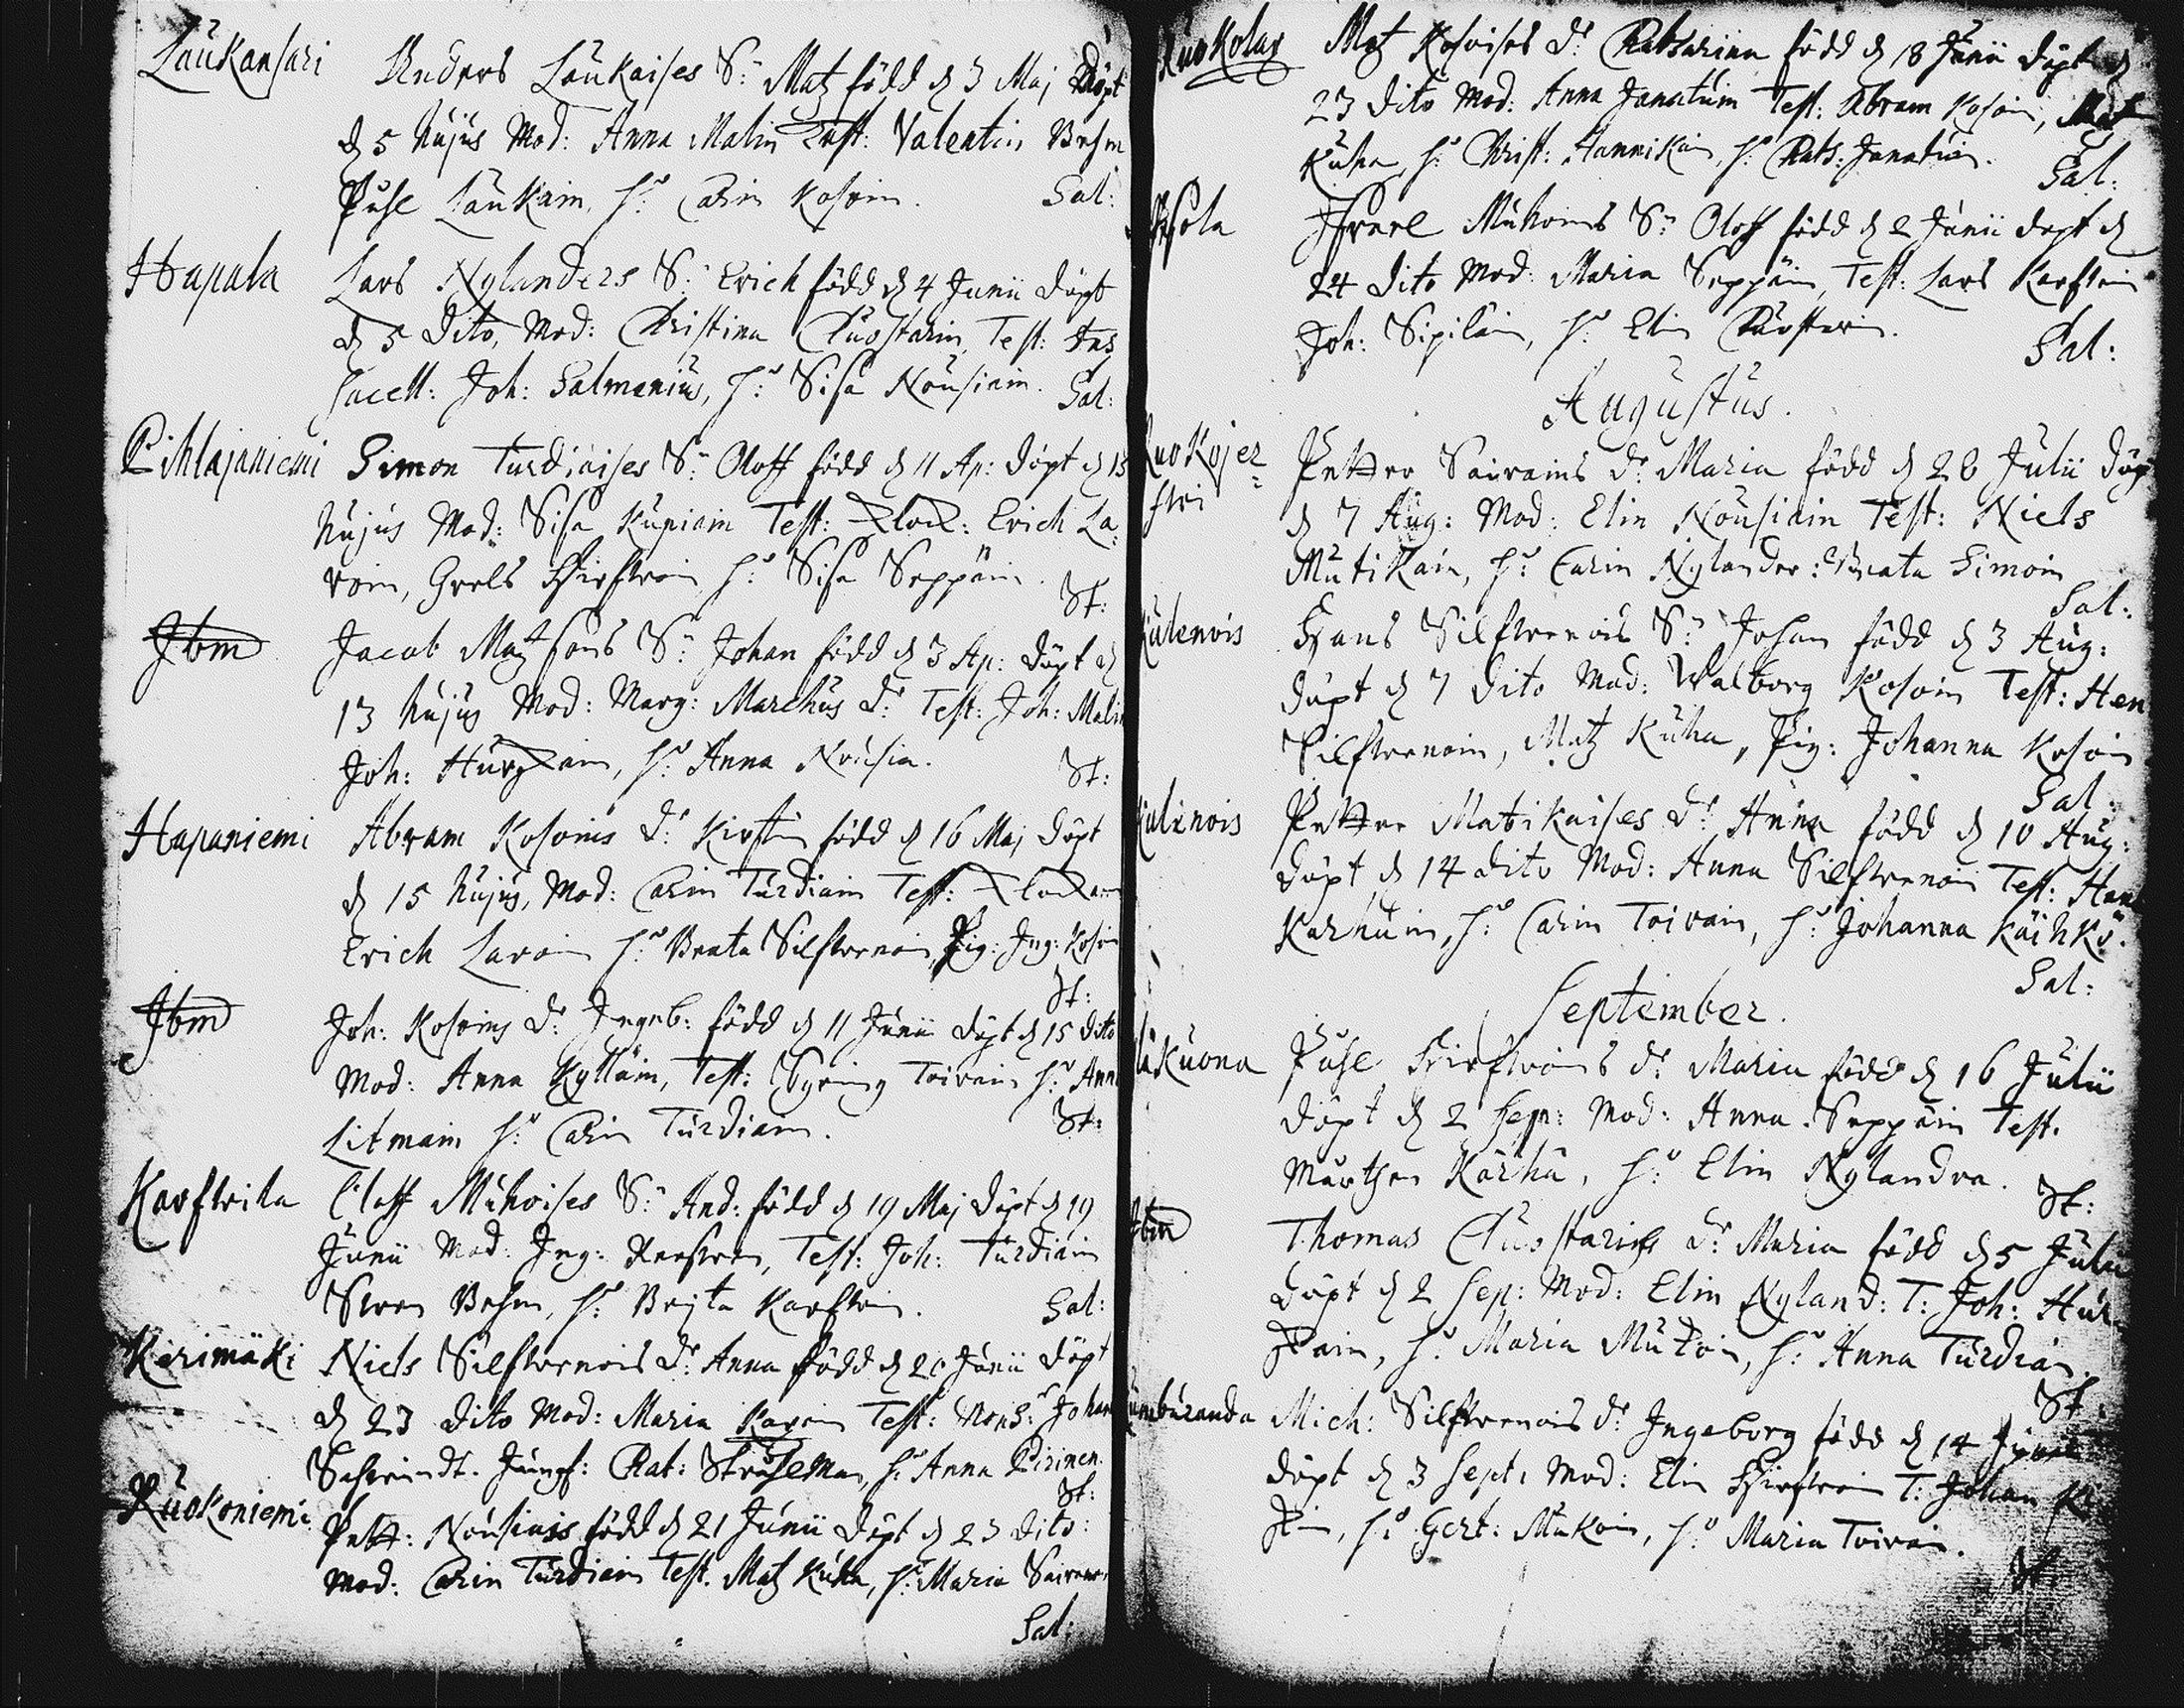 Laukansari Anders Laukaises S: Matz född d 3 Maj Döpt
d 5 hujus Mod: Anna Malin Test: Valentin Behm
Påhl Laukain, h: Carin Kosoin. Sal:
Hapala Lars Nylanders S: Erich född d 4 Junii döpt
d 5 dito, Mod: Christina Cluostarin, Test:
Sacell: Joh: Salmenius, h: Lisa Nousiain. Sal:
Pihlajaniemi Simon Turdiaises S: Oloff född d 11 Ap: döpt d 13
hujus Mod: Lisa Kupiain Test: Klock: Erich La-
roin, Grels Hirfwoin h: Lisa Seppäin. St:
Ibm Jacob Matzsons S: Johan född d 3 Ap: döpt d
13 hujus Mod: Marg: Marchus D: Test: Joh: Malin
Joh: Hurskain, h: Anna Nousia. St:
Hapaniemi Abram Kosoins D: Kirstin född d 16 Maj döpt
d 15 hujus, Mod: Carin Turdiain Test: Klockaren
Erich Laroin h: Beata Silfwenoin, Pig: Ing: Kosoin
St:
Ibm Joh: Kosoins D: Ingeb: född d 11 Junii döpt d 15 dito
Mod: Anna Kylläin, Test: Toivain h: Anna
Litmain h: Carin Turdiain. St:
Karfwila Oloff Muhoises S: And: född d 19 Maj döpt d 19
Junii Mod: Ing: Test: Joh: Turdiain
Sven Behm, h: Brijta Karfwoin. Sal:
Kerimäki Niels Silfwenois D: Anna född d 20 Junii döpt
d 23 dito Mod: Maria Karoin Test: Mons: Johan
Jungf: Cat: h: Anna Pirinen.
St:
Ruokoniemi Pett: Nousiais född d 21 Junii döpt d 23 dito:
Mod: Carin Turdiain Test. Matz Kuha, h: Maria Sairanen
Sal:
Ruokolax Matz Kosoises D: Catharina född d 18 Junii döpt d
23 dito Mod: Anna Janatuin Test: Abram Kosoin, Matz
Kuha, h: Christ: Hannikain, h: Cath: Janatuin. Sal:
Israel Muhoins S: Oloff född d 2 Junii döpt d
24 dito Mod: Maria Seppäin, Test: Lars Karfwoin
Joh: Sipiläin, h: Elin Cluostarin. Sal:
Augustus.
Ruokojer- Petter Sairains D: Maria född d 26 Julii döpt
fwi d 7 Aug: Mod: Elin Nousiain Test: Niels
Mutikain, h: Carin Nylander: Beata Simoin
Sal:
Kulenois Hans Silfwenois S: Johan född d 3 Aug:
döpt d 7 dito Mod: Walborg Kosoin Test: Hen
Silfwenoin, Matz Kuha, Pig: Johanna Kosoin
Sal:
Kulenois Petter Matikaises D: Anna född d 10 Aug:
döpt d 14 dito Mod: Anna Silfwenoin Test: Han
Karhuin, h: Carin Toivain, h: Johanna Käihkö.
Sal:
September.
Påhl Hirfwois D: Maria född d 16 Julii
döpt d 2 Sep: Mod: Anna Seppäin Test.
Mårthen Karhu, h: Elin Nylandra. St:
Ibm Thomas Cluostarins D: Maria född d 5 Julii
döpt d 2 Sep: Mod: Elin Nyland: T: Joh: Hur-
skain, h: Maria Mukoin, h: Anna Turdiain.
St:
Kumburanda Mich: Silfwenois D: Ingeborg född d 14
döpt d 3 Sept: Mod: Elin Hirfwoin T: Johan
h: Gert: Mukoin, h: Maria Toivain.
St: